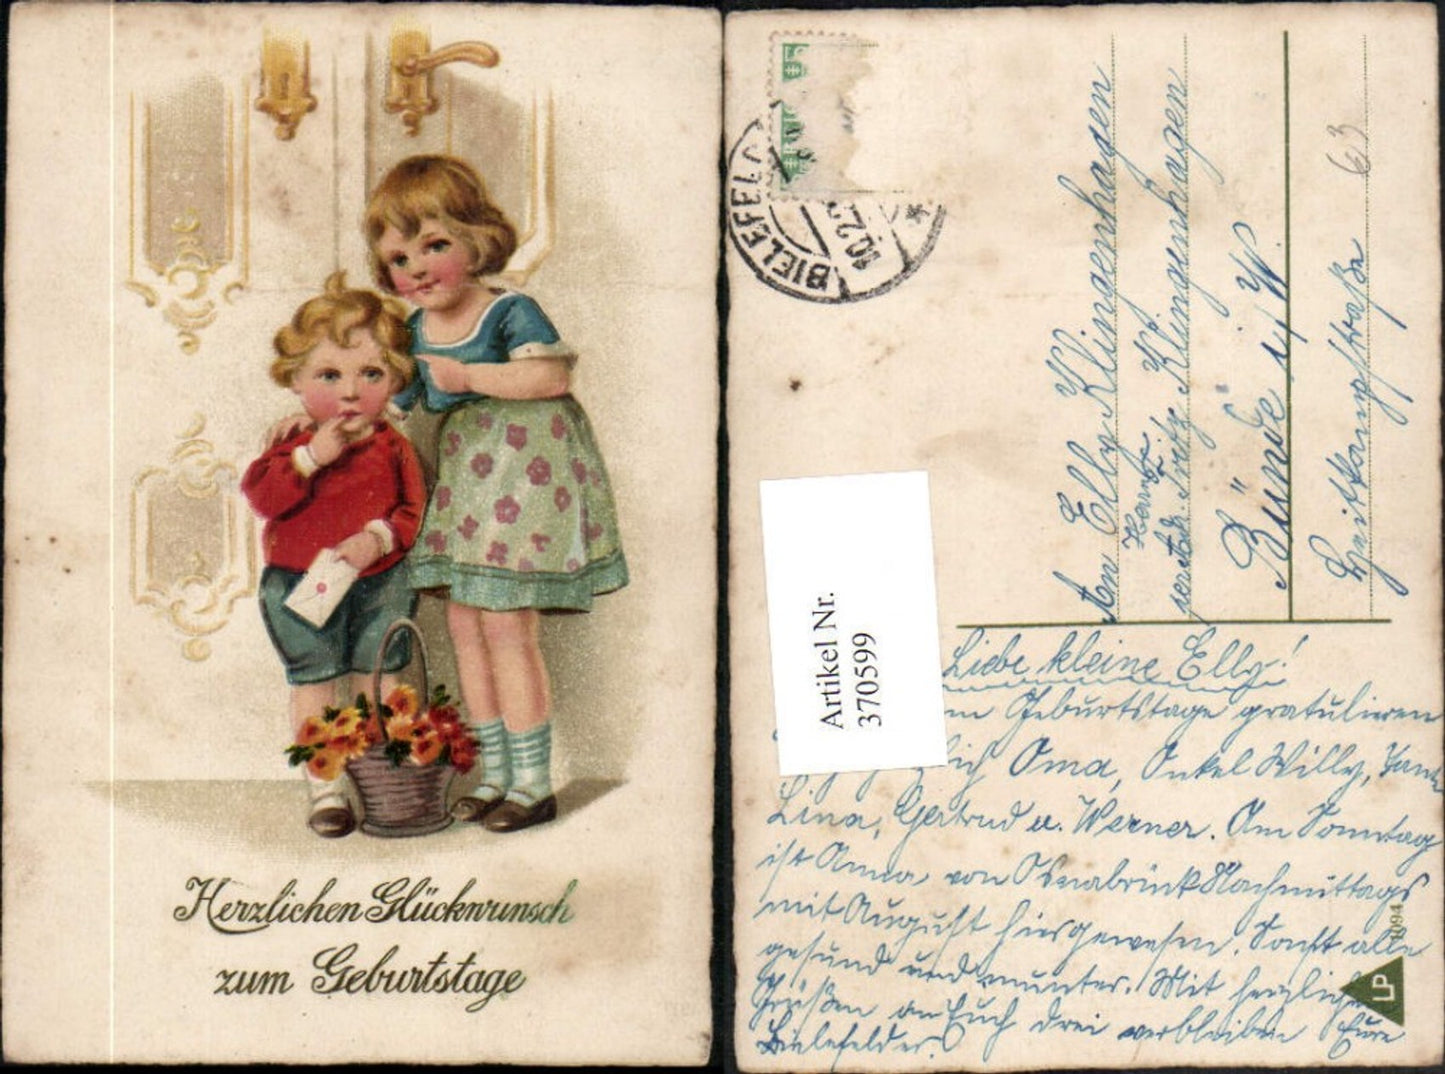 Herzlichen Glückwunsch
zum Geburtstage
BIELEFELD
Artikel Nr.
370599
An Elly Klingenhagen
Fritz Klingenhagen
Bünde i/W.
straße 63
Liebe kleine Elly!
Geburtstage gratulieren
Oma, Onkel Willy, Tante
Lina, Gertrud u. Werner. Am Sonntag
ist Anna von Osnabrück Nachmittags
mit August hiergewesen. Sonst alle
gesund und munter. Mit herzlichen
Grüßen an Euch drei verbleiben Eure
Bielefelder.
1094
LP